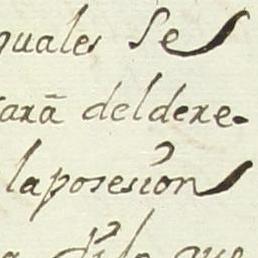 quales Se
tarã deldere-
laposesion
que